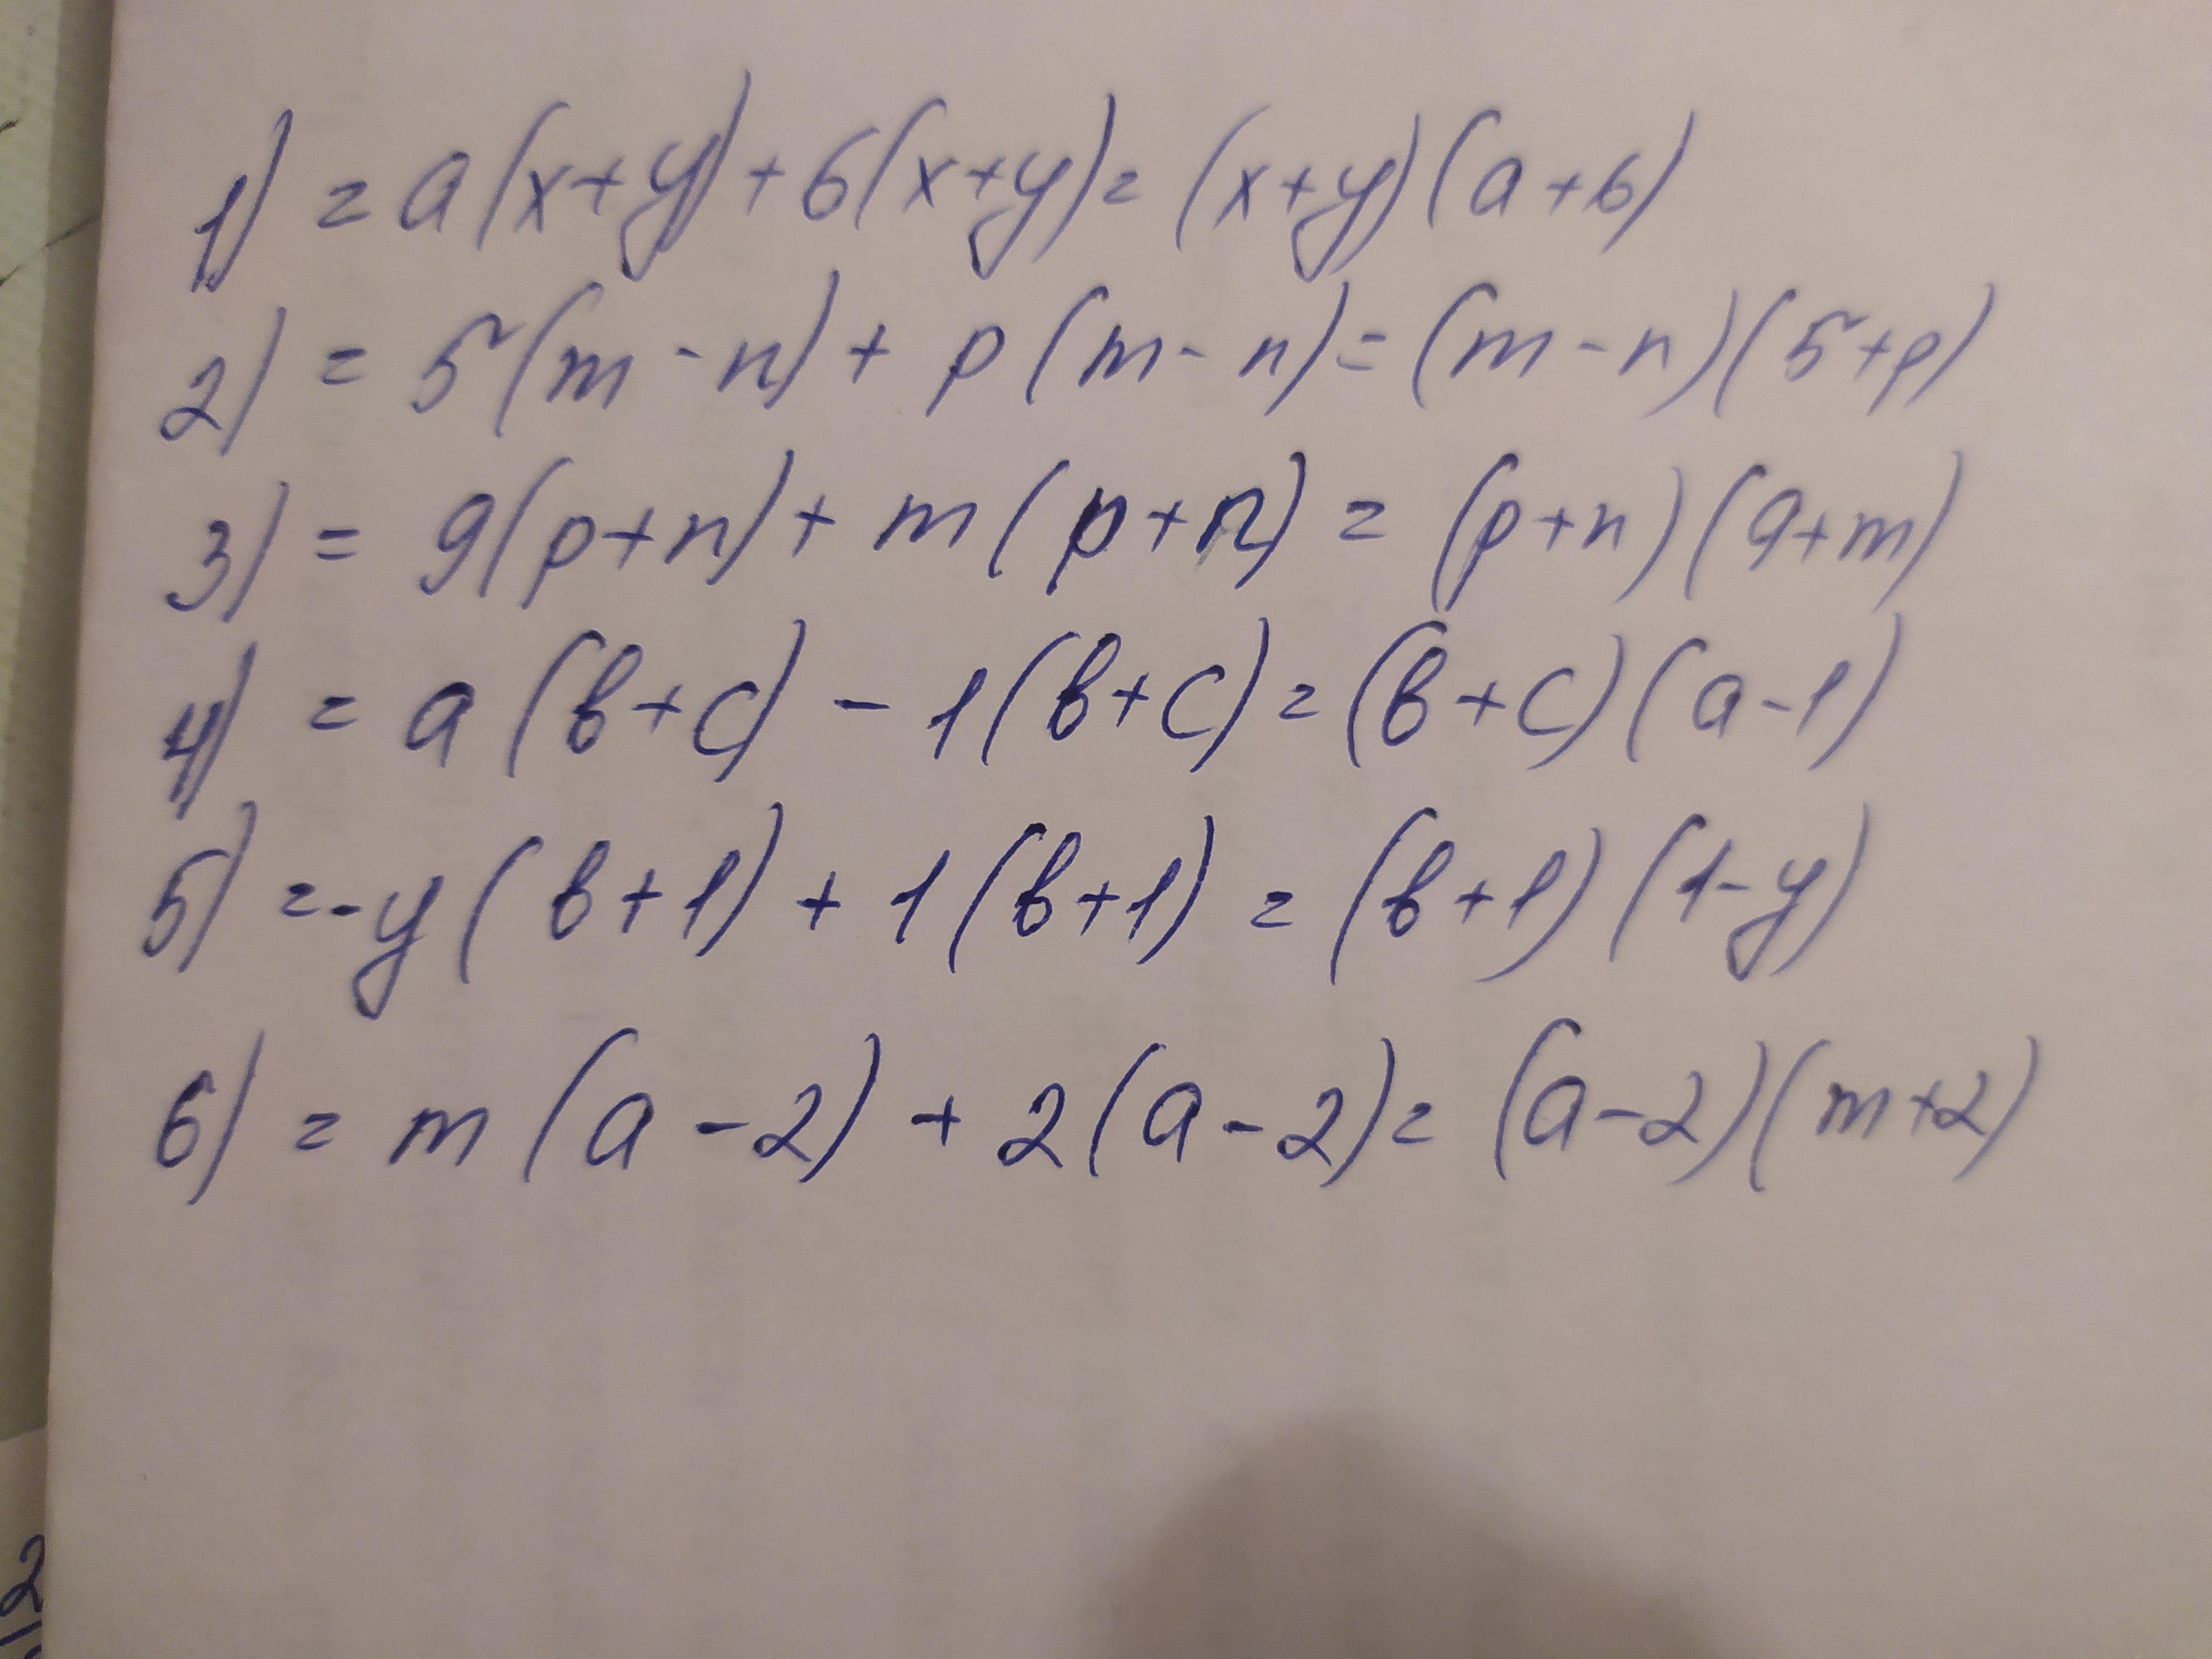 1) = a(x+y)+6(x+y)= (x+y)(a+6)
2) = 5(m-n)+ p(m-n)=(m-n)(5+p)
3) = 9(p+n)+ m(p+n) = (p+n)(9+m)
4) = a(в+c) - 1(в+c)=(в+c)(a-1)
5) =-y(в+1) + 1(в+1) = (в+1)(1-y)
6) = m(a-2) + 2(a-2)= (a-2)(m+2)
2